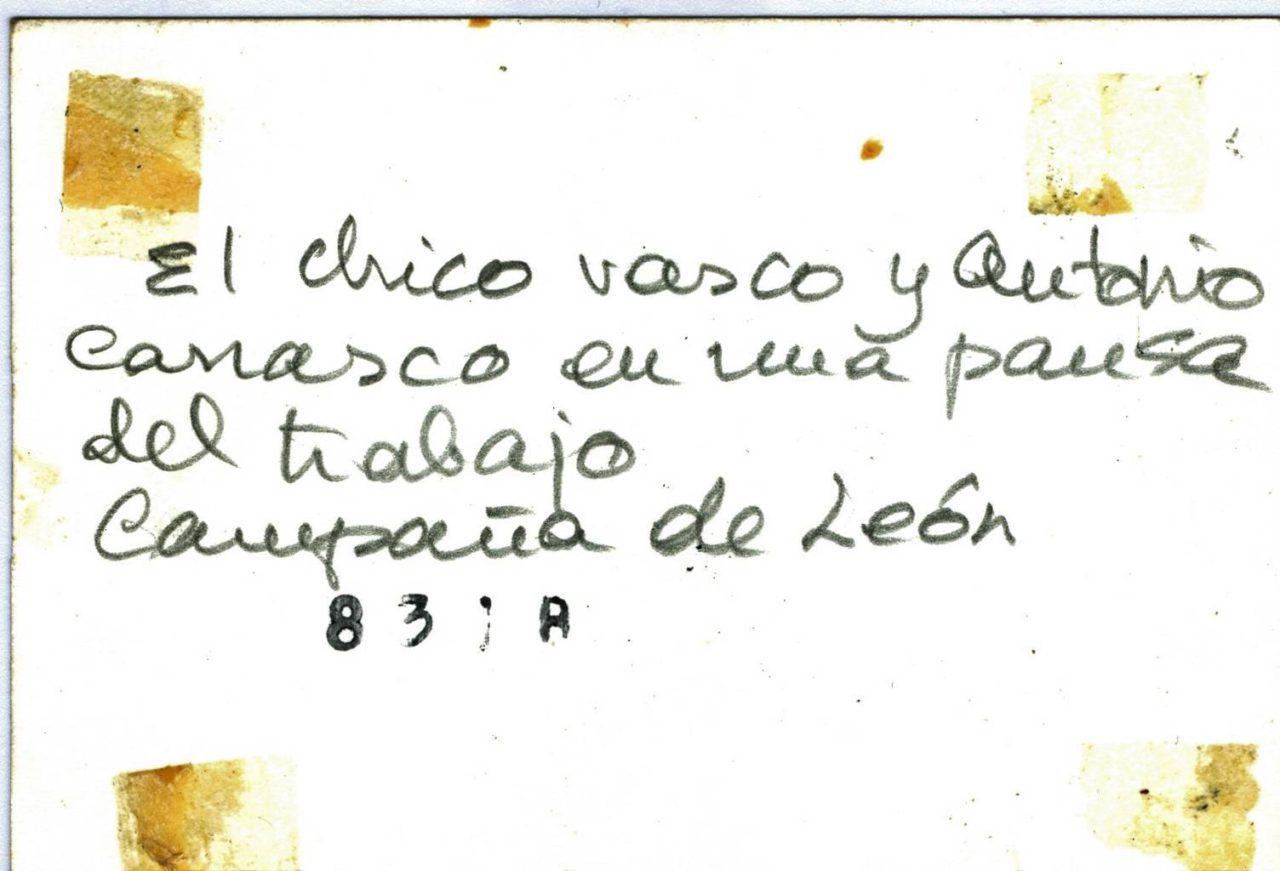 El chico vasco y Antonio
Carrasco en una pausa
del trabajo
Campaña de León
83 1 A